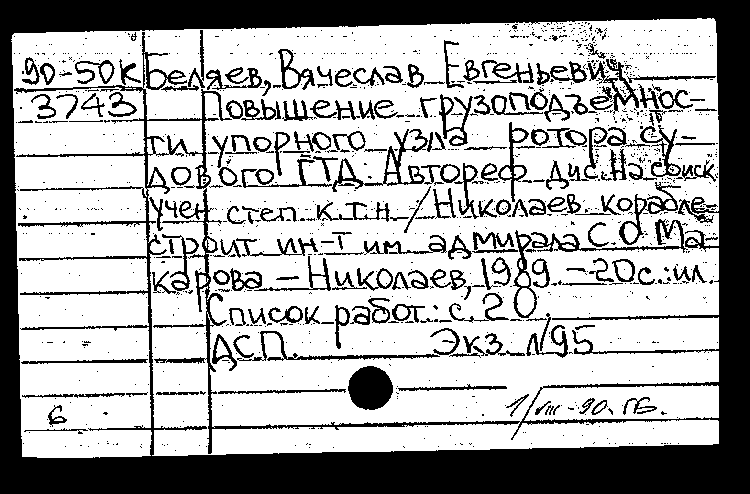 90-50К Беляев, Вячеслав Евгеньевич
3743 Повышение грузоподъемнос-
ти упорного узла ротора су-
дового ГТД. Автореф. дис. на соиск.
учен. степ. к.т.н. / Николаев. корабле-
строит. ин-т им. адмирала С.О. Ма-
карова. - Николаев, 1989. - 20 с.: ил.
Список работ: с. 20.
ДСП. Экз. №95
6 1/VIII-90. ГБ.